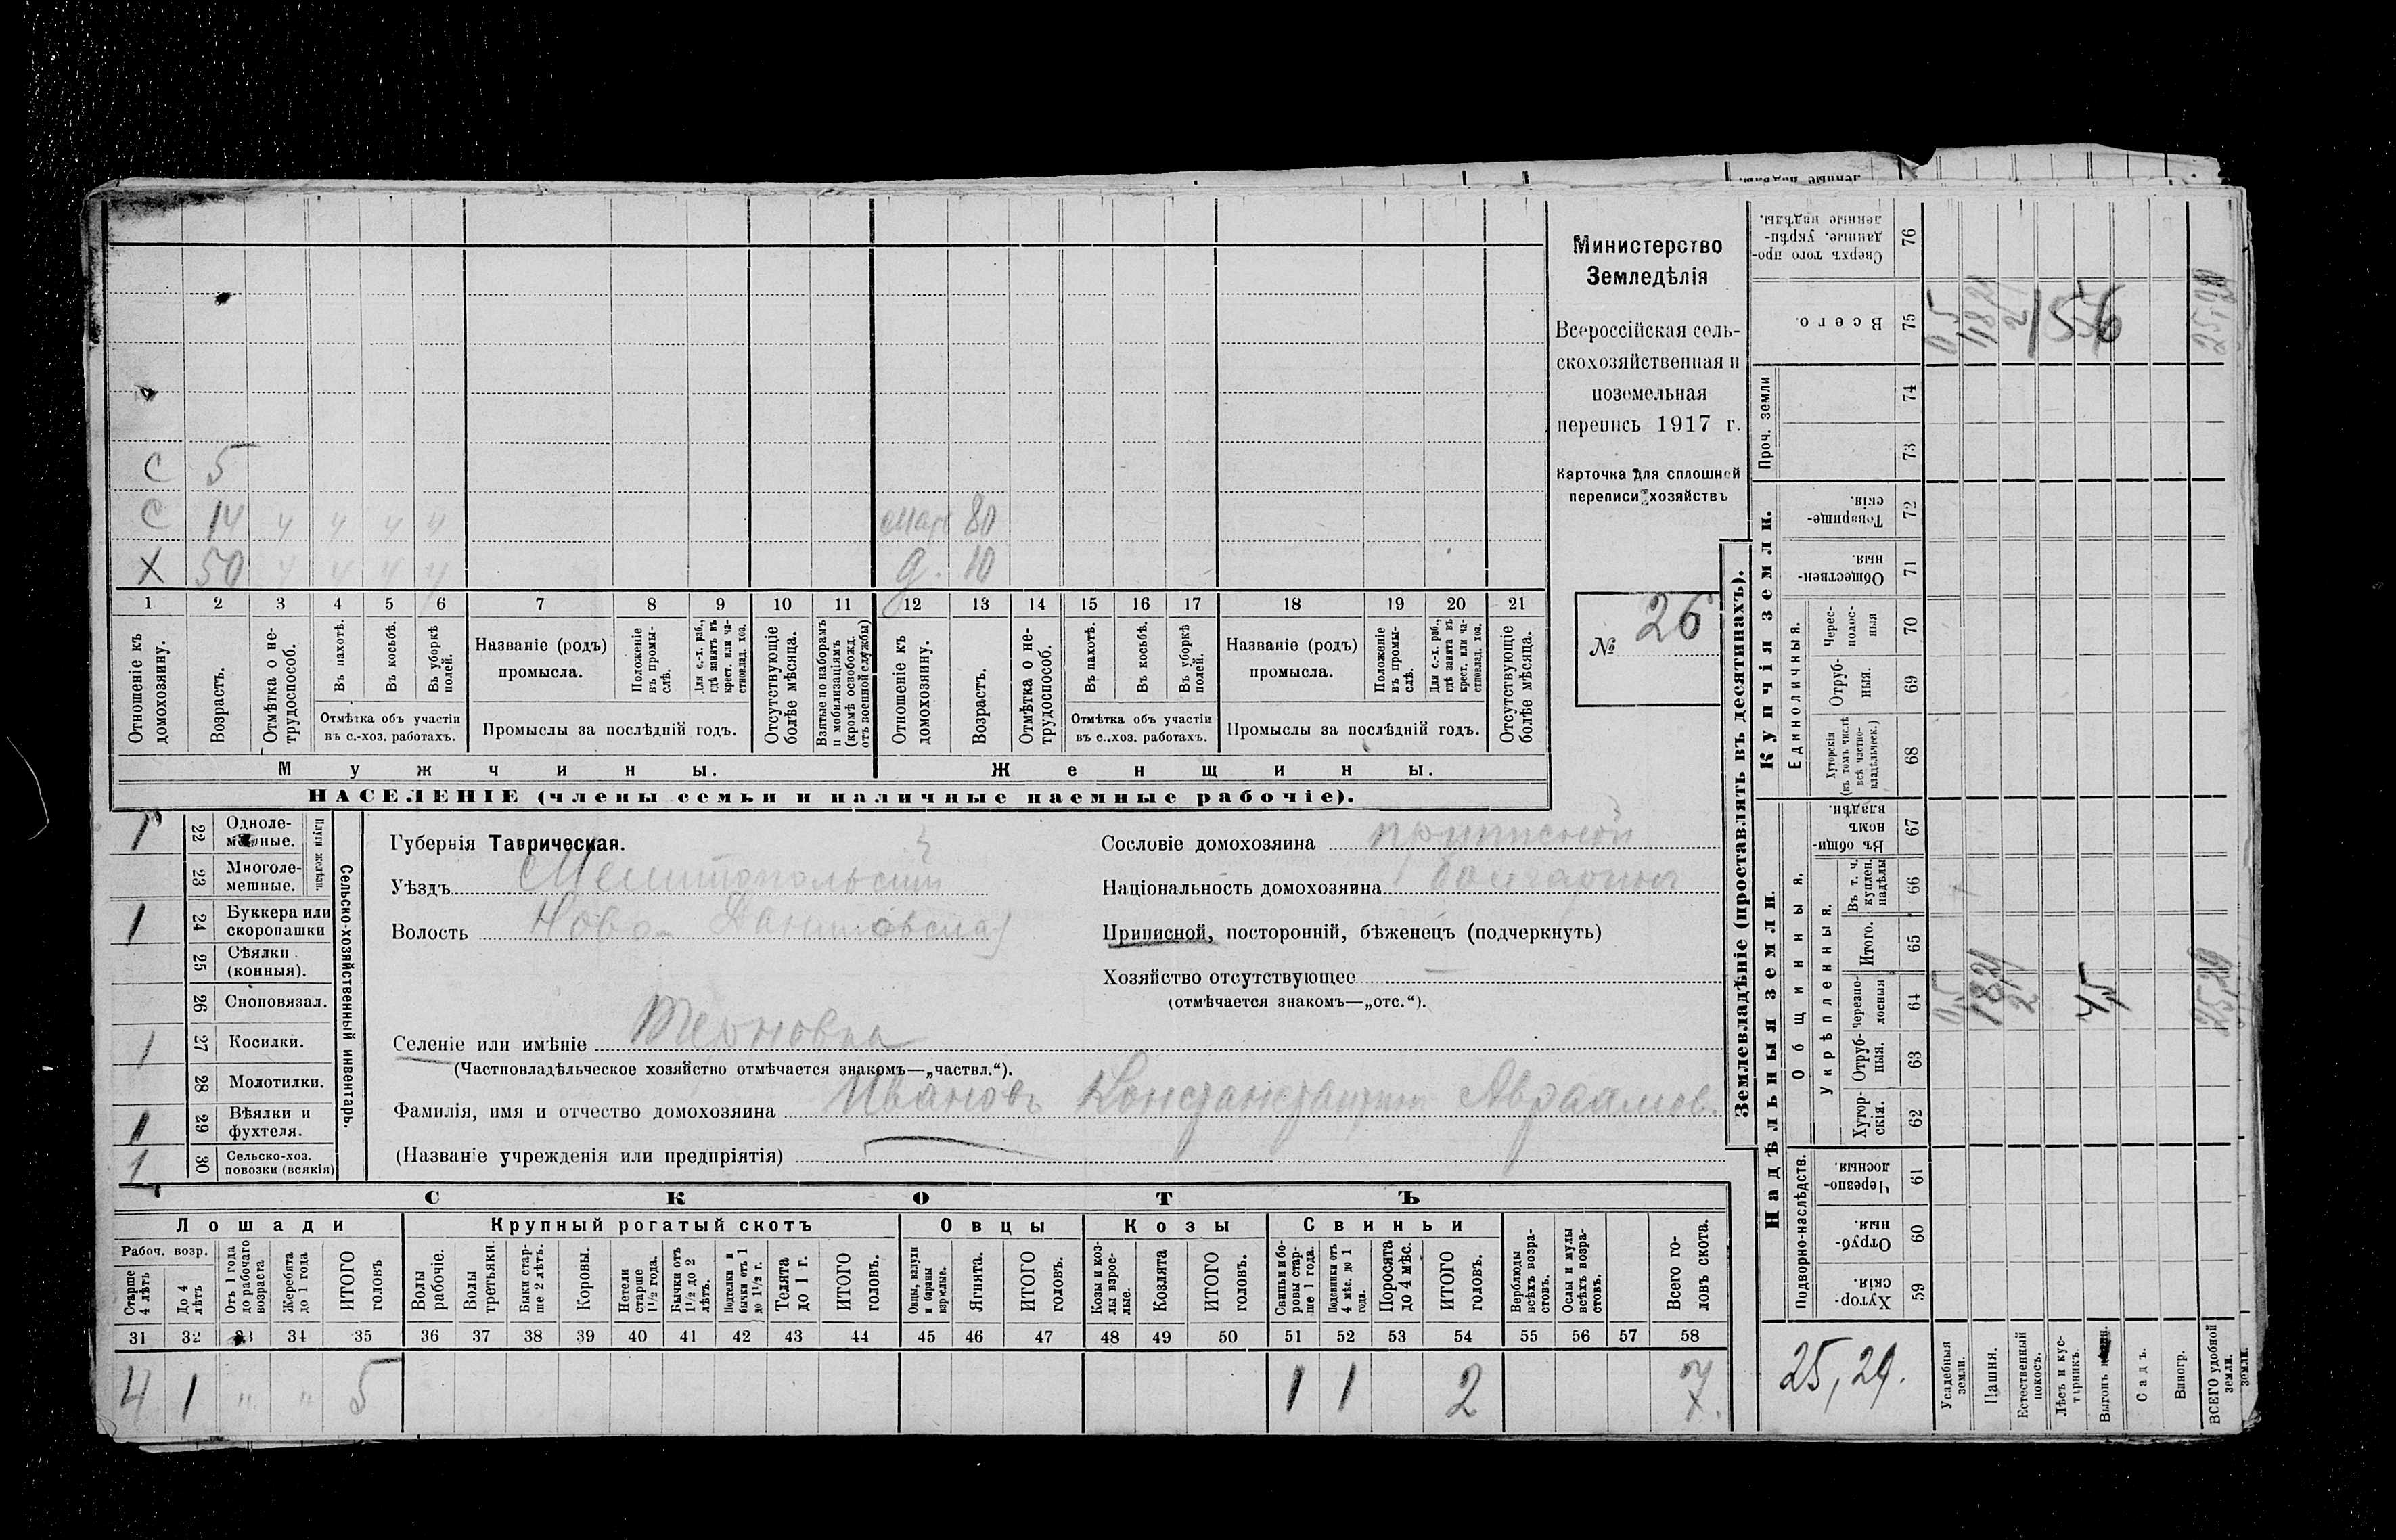 С 5
С 14 ч ч ч ч мат 80
Х 50 ч ч ч ч д. 10
1 2 3 4 5 6 7 8 9 10 11 12 13 14 15 16 17 18 19 20 21
Отношеніе къ домохозяину.
Возрастъ.
Отмѣтка о не-
трудоспособ.
Въ пахотѣ.
Въ косьбѣ.
Въ уборкѣ
полей.
Отмѣтка объ участіи
въ с.-хоз. работахъ.
Названіе (родъ)
промысла.
Положеніе
въ промы-
слѣ.
Для с.-х. раб.,
гдѣ занятъ въ
крест. или ча-
стновлад. хоз.
Промыслы за послѣдній годъ.
Отсутствующіе
болѣе мѣсяца.
Взятые по наборамъ
и мобилизаціямъ
(кромѣ освобожд.
отъ военной службы)
Отношеніе къ
домохозяину.
Возрастъ.
Отмѣтка о не-
трудоспособ.
Въ пахотѣ.
Въ косьбѣ.
Въ уборкѣ
полей.
Отмѣтка объ участіи
въ с.-хоз. работахъ.
Названіе (родъ)
промысла.
Положеніе
въ промы-
слѣ.
Для с.-х. раб.,
гдѣ занята въ
крест. или ча-
стновлад. хоз.
Промыслы за послѣдній годъ.
Отсутствующіе
болѣе мѣсяца.
Мужчины. Женщины.
НАСЕЛЕНІЕ (члены семьи и наличные наемные рабочіе).
Министерство
Земледѣлія
Всероссійская сель-
скохозяйственная и
поземельная
перепись 1917 г.
Карточка для сплошной
переписи хозяйствъ
№ 26
1 22 Одноле-
мешные.
23 Многоле-
мешные.
Плуги желѣзн.
1 24 Буккера или
скоропашки
25 Сѣялки
(конныя).
26 Сноповязал.
1 27 Косилки.
28 Молотилки.
1 29 Вѣялки и
фухтеля.
1 30 Сельско-хоз.
повозки (всякія)
Сельско-хозяйственный инвентарь.
Губернія Таврическая.
Уѣздъ Мелитопольскій
Волость Ново-Даниловская
Сословіе домохозяина приписной
Національность домохозяина болгаринъ
Приписной, посторонній, бѣженецъ (подчеркнуть)
Хозяйство отсутствующее —
(отмѣчается знакомъ—„отс.“).
Селеніе или имѣніе Терновка
(Частновладѣльческое хозяйство отмѣчается знакомъ—„частвл.“).
Фамилія, имя и отчество домохозяина Ивановъ Константинъ Авраамов.
(Названіе учрежденія или предпріятія)
СКОТЪ
Лошади Крупный рогатый скотъ Овцы Козы Свиньи
Рабоч. возр.
Старше
4 лѣтъ
До 4
лѣтъ
Отъ 1 года
до рабочаго
возраста
Жеребята
до 1 года
ИТОГО
головъ
Волы
рабочіе.
Волы
третьяки.
Быки стар-
ше 2 лѣтъ.
Коровы.
Нетели
старше
1½ года.
Бычки отъ
1½ до 2
лѣтъ.
Подтелки и
бычки отъ 1
до 1½ г.
Телята
до 1 г.
ИТОГО
головъ.
Овцы, валухи
и бараны
взрослые.
Ягнята.
ИТОГО
головъ.
Козы и коз-
лы взрос-
лые.
Козлята
ИТОГО
головъ.
Свиньи бо-
ровы стар-
ше 1 года.
Подсвинки отъ
4 мѣс. до 1
года.
Поросята
до 4 мѣс.
ИТОГО
головъ.
Верблюды
всѣхъ возра-
стовъ.
Ослы и мулы
всѣхъ возра-
стовъ.
Всего го-
ловъ скота.
31 32 33 34 35 36 37 38 39 40 41 42 43 44 45 46 47 48 49 50 51 52 53 54 55 56 57 58
4 1 " " 5 1 1 2 7.
Землевладѣніе (проставлять въ десятинахъ).
Сверхъ того про-
данные, укрѣп-
ленные надѣлы.
76
Всего. 75 0,5 18,21 25,29
Проч. земли
74
73
Купчія земли.
Товарище-
скія.
72
Обществен-
ныя.
71
Единоличныя.
Черес-
полос-
ныя
70
Отруб-
ныя.
69
Хуторскія
(въ томъ числѣ
всѣ частно-
владѣльческ.)
68
Надѣльныя земли.
Общинныя.
Въ общи-
номъ
владѣн.
67
Укрѣпленныя.
Въ т. ч.
куплен.
надѣлы
66
Итого.
65
Черезпо-
лосныя
64 0,5 18,21 4,5 25,29
Отруб-
ныя.
63
Хутор-
скія.
62
Подворно-наслѣдств.
Черезпо-
лосныя.
61
Отруб-
ныя.
60
Хутор-
скія.
59
25,29.
Усадебныя
земли.
Пашня.
Естественный
покосъ.
Лѣсъ и кус-
тарникъ.
Выгонъ
Садъ.
Виногр.
ВСЕГО удобной
земли.